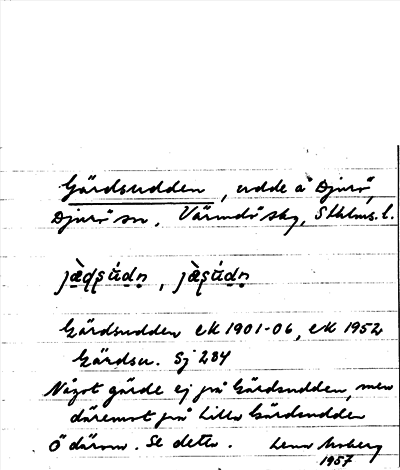 Gärdsudden, udde å Djurö,
Djurö sn. Värmdö skg, Sthlms. l.
Gärdsudden ek 1901-06, ek 1952
Gärdsu. Sj 284
Något gärde ej på Gärdsudden, men
däremot på Lilla Gärdsudden
Ö därom. Se detta.
1957